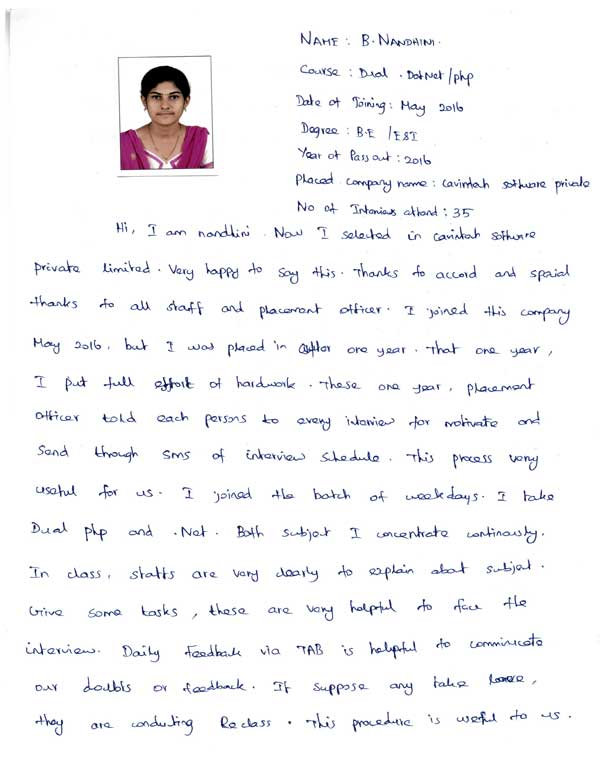 NAME : B. NANDHINI.
Course : Dual . DotNet/php
Date of Joining : May 2016
Degree : B.E /E&I
Year of Pass out : 2016
Placed company name : Cavintah software private
No of Interviews attend : 35
Hi, I am nandhini . Now I selected in Cavintah software
private limited . Very happy to say this . Thanks to accord and spaid
thanks to all staff and placement officer . I joined this company
May 2016, but I was placed in after one year . That one year,
I put full effort of hardwork . These one year, placement
officer told each persons to every interview for motivate and
Send through sms of interview schedule . This process very
useful for us . I joined the batch of weekdays . I take
Dual php and .Net . Both subject I concentrate continously.
In class, staffs are very clearly to explain about subject .
Give some tasks , these are very helpful to face the
interview . Daily feedback via TAB is helpful to communicate
our doubts or feedback . If suppose any take leave,
they are conducting Reclass . This procedure is useful to us .